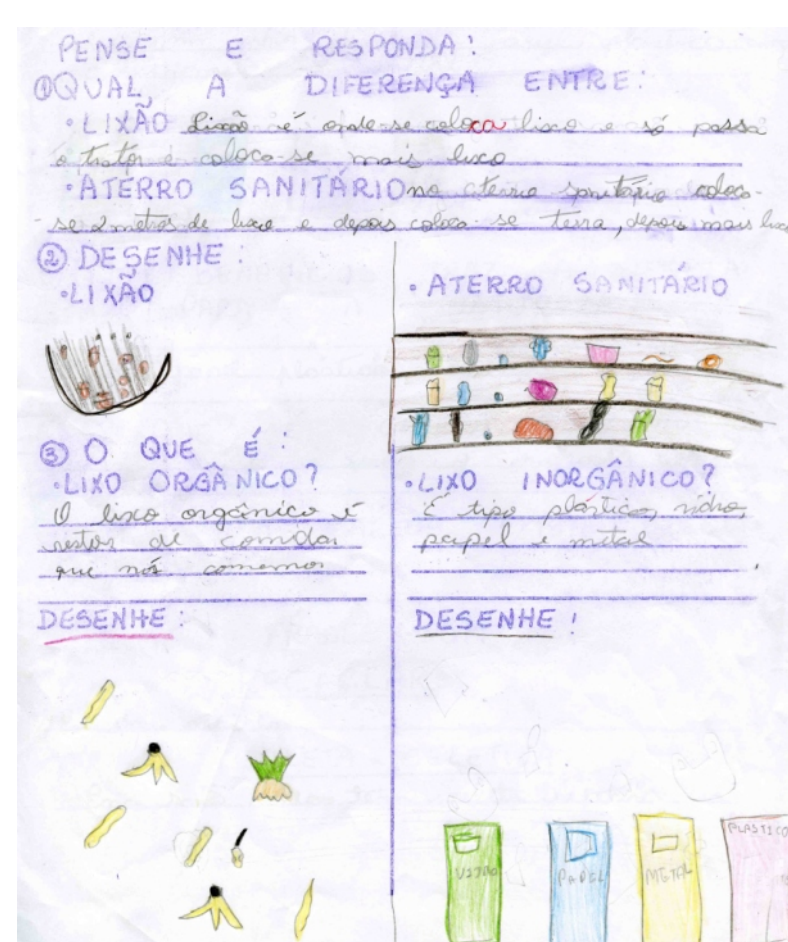 PENSE E RESPONDA:
① QUAL A DIFERENÇA ENTRE:
• LIXÃO Lixão é onde se coloca lixo e só passa
o trator e coloca-se mais lixo
• ATERRO SANITÁRIO no aterro sanitário coloca-
se 2 metros de lixo e depois coloca se terra, depois mais lixo
② DESENHE:
• LIXÃO
• ATERRO SANITÁRIO
③ O QUE É:
• LIXO ORGÂNICO?
O lixo orgânico é
restos de comidas
que nós comemos
DESENHE:
• LIXO INORGÂNICO?
É tipo plástico, vidro,
papel e metal
DESENHE:
VIDRO
PAPEL
METAL
PLASTICO